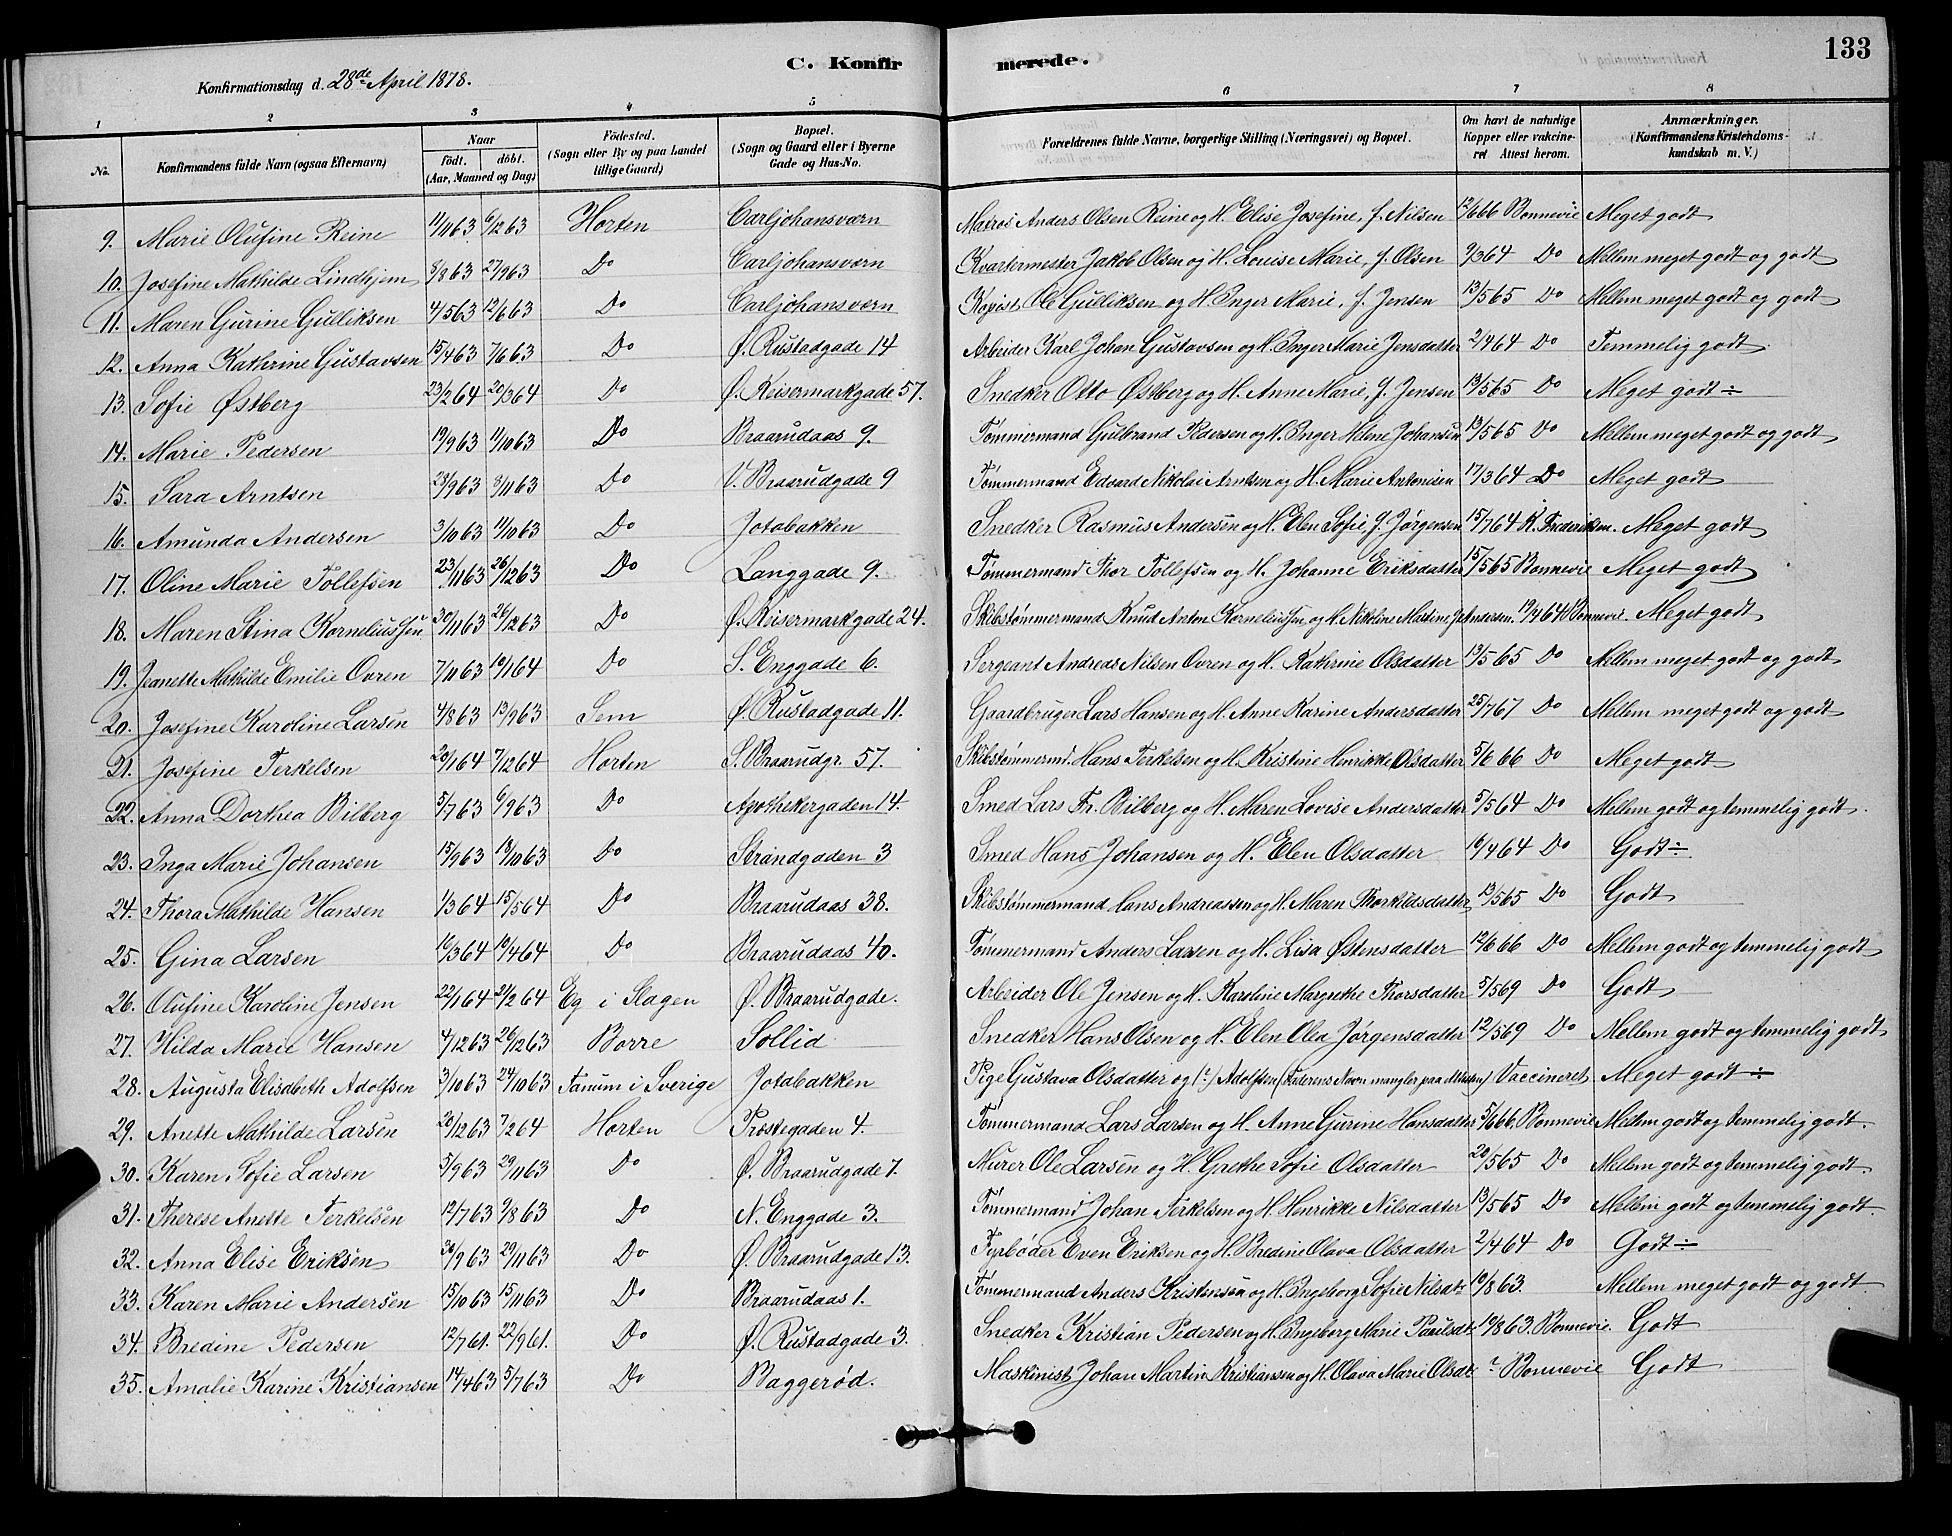 C. Konfirmerede.
133
Konfirmationsdag d. 28de April 1878.
1 2 3 4 5 6 7 8
No. Konfirmandens fulde Navn (ogsaa Efternavn) Naar født. døbt. (Aar, Maaned og Dag) Fødested. (Sogn eller By og paa Landet tillige Gaard) Bopæl. (Sogn og Gaard eller i Byerne Gade og Hus-No. Forældrenes fulde Navne, borgerlige Stilling (Næringsvei) og Bopæl. Om havt de naturlige Kopper eller vakcineret Attest herom. Anmærkninger. (Konfirmandens Kristendomskundskab m. V.)
9. Marie Olufine Reine 11/1163 6/1263 Horten Carljohansværn Matros Anders Olsen Reine og H. Elise Josefine, f. Nilsen 12/666 Bonnevie Meget godt
10. Josefine Mathilde Lindhjem 8/863 27/963 Do Carljohansværn Kvartermester Jakob Olsen og H. Louise Marie, f. Olsen 9/364 Do Mellem meget godt og godt
11. Maren Gurine Gulliksen 4/563 12/663 Do Carljohansværn Kopist Ole Gulliksen og H. Inger Marie, f. Jensen 13/565 Do Mellem meget godt og godt
12. Anna Kathrine Gustavsen 15/463 7/663 Do Ø. Rustadgade 14 Arbeider Karl Johan Gustavsen og H. Inger Marie Jensdatter 2/464 Do Temmelig godt
13. Sofie Østberg 23/264 20/364 Do Ø. Keisermarkgade 57. Snedker Otto Østberg og H. Anne Marie, f. Jensen 13/565 Do Meget godt ÷
14. Marie Pedersen 19/963 11/1063 Do Braarudaas 9. Tømmermand Gulbrand Pedersen og H. Inger Helene Johansen 13/565 Do Mellem meget godt og godt
15. Sara Arntsen 28/963 8/1163 Do V. Braarudgade 9 Tømmermand Edvard Nikolai Arntsen og H. Marie Antonisen 17/364 Do Meget godt
16. Amunda Andersen 3/1063 11/1063 Do Jotabakken Snedker Rasmus Andersen og H. Elen Sofie f. Jørgensen 15/764 K. Frederiksen. Meget godt
17. Oline Marie Tollefsen 23/1163 26/1263 Do Langgade 9. Tømmermand Thor Tollefsen og H. Johanne Eriksdatter 15/565 Bonnevie Meget godt
18. Maren Stina Korneliussen 30/1163 26/1263 Do Ø. Keisermarkgade 24. Skibstømmermand Knud Anton Korneliussen og H. Nikoline Maldine f. Andersen 19/464 Bonnevie. Meget godt
19. Jeanette Mathilde Emilie Ovren 7/1163 10/164 Do S. Enggade 6. Sergeant Andreas Nilsen Ovren og H. Kathrine Olsdatter 13/565 Do Mellem meget godt og godt
20. Josefine Karoline Larsen 4/863 13/963 Sem Ø. Rustadgade 11. Gaardbruger Lars Hansen og H. Anne Karine Andersdatter 25/767 Do Mellem meget godt og godt
21. Josefine Terkelsen 20/164 7/1264 Horten S. Braarudgr. 57. Skibstømmermd. Hans Terkelsen og H. Kristine Henrikke Olsdatter 5/666 Do Meget godt
22. Anna Dorthea Bilberg 5/763 6/963 Do Apothekergaden 14. Smed Lars Fr. Bilberg og H. Maren Lovise Andersdatter 5/564 Do Mellem godt og temmelig godt.
23. Inga Marie Johansen 15/963 18/1063 Do Strandgaden 3 Smed Hans Johansen og H. Elen Olsdatter 10/464 Do Godt ÷
24. Thora Mathilde Hansen 1/364 15/564 Do Braarudaas 38. Skibstømmermand Hans Andreassen og H. Maren Thorkildsdatter 13/565 Do Godt
25. Gina Larsen 16/364 10/464 Do Braarudaas 40. Tømmermand Anders Larsen og H. Lisa Østensdatter 12/666 Do Mellem godt og temmelig godt
26. Olufine Karoline Jensen 22/164 21/264 Eg i Slagen Ø. Braarudgade. Arbeider Ole Jensen og H. Karoline Margrethe Thorsdatter 5/569 Do Godt
27. Hilda Marie Hansen 4/1263 26/1263 Borre Sollid Snedker Hans Olsen og H. Elen Olea Jørgensdatter 12/569 Do Mellem godt og temmelig godt
28. Augusta Elisabeth Adolfsen 3/1063 24/1063 Tanum i Sverige Jotabakken Pige Gustava Olsdatter og (?) Adolfsen (Faderens Navn mangler paa Attesten) Vaccineret Meget godt ÷
29. Anette Mathilde Larsen 28/1263 7/264 Horten Præstegaden 4. Tømmermand Lars Larsen og H. Anne Gurine Hansdatter 5/666. Bonnevie Mellem godt og temmelig godt.
30. Karen Sofie Larsen 5/963 29/1163 Do Ø. Braarudgade 7. Murer Ole Larsen og H. Grethe Sofie Olsdatter 20/565 Do Mellem godt og temmelig godt
31. Therese Anette Terkelsen 12/763 9/863 Do N. Enggade 3. Tømmermand Johan Terkelsen og H. Henrikke Nilsdatter 13/565 Do Mellem godt og temmelig godt.
32. Anna Elise Eriksen 30/963 29/1163 Do Ø. Braarudgade 13. Fyrbøder Even Eriksen og H. Bredine Olava Olsdatter 2/464 Do Godt ÷
33. Karen Marie Andersen 15/1063 15/1163 Do Braarudaas 1. Tømmermand Anders Kristensen og H. Ingeborg Sofie Nilsdt. 10/863. Mellem meget godt og godt.
34. Bredine Pedersen 12/761. 22/961. Do Ø. Rustadgade 3. Snedker Kristian Pedersen og H. Ingeborg Marie Paulsdt. 10/863. Bonnevie. Godt
35. Amalie Karine Kristiansen 14/463 5/763 Do Baggerød. Maskinist Johan Martin Kristiansen og H. Olava Marie Olsdt. ? Bonnevie Godt